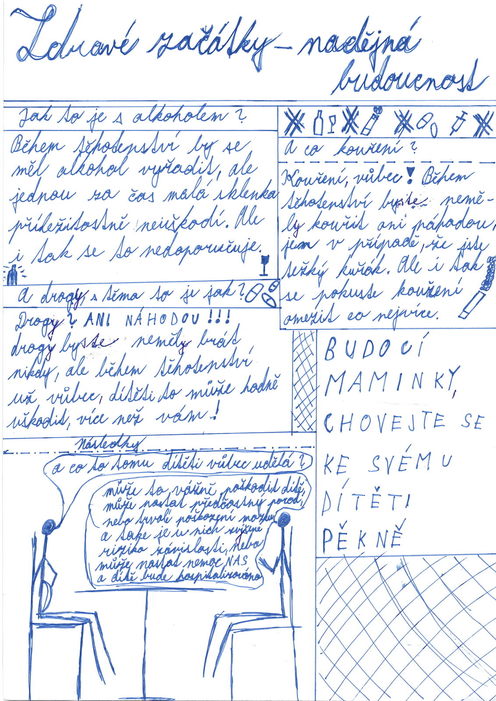 Zdravé začátky – nadějná
budoucnost
Jak to je s alkoholem?
Během těhotenství by se
měl alkohol vyřadit, ale
jednou za čas malá sklenka
příležitostně neuškodí. Ale
i tak se to nedoporučuje.
A co kouření?
Kouření, vůbec! Během
těhotenství byste nemě-
ly kouřit ani náhodou,
jem v případě, že jste
těžký kuřák. Ale i tak
se pokuste kouření
omezit co nejvíce.
A drogy, s těma to je jak?
Drogy? ANI NÁHODOU!!!
drogy byste neměly brát
nikdy, ale během těhotenství
už vůbec, dítěti to může hodně
uškodit, více než vám!
BUDOCÍ
MAMINKY,
CHOVEJTE SE
KE SVÉMU
DÍTĚTI
PĚKNĚ
Následky
a co to tomu dítěti vůbec udělá?
může to vážně poškodit dítě,
může nastat předčastný porod,
nebo trvalé poškození mozku
a také je u nich zvýšené
riziko závislosti, nebo
může nastat nemoc NAS
a dítě bude hospitalizováno